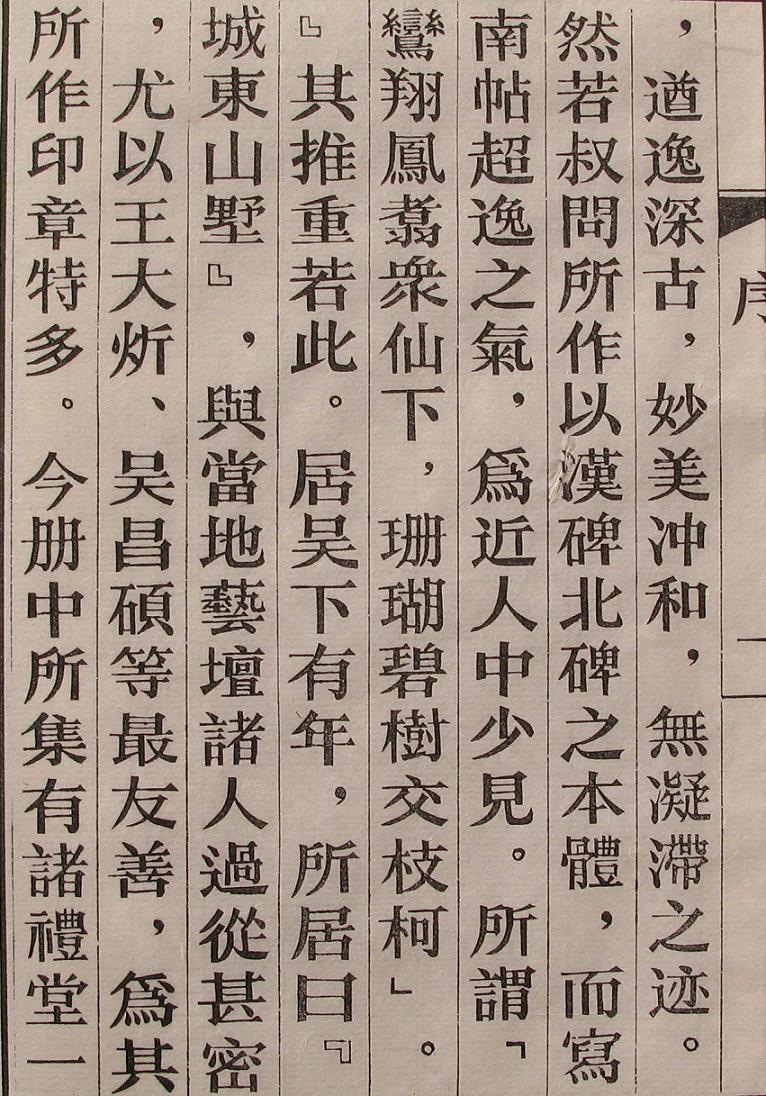 序
，遒逸深古，妙美冲和，無凝滯之迹。
然若叔問所作以漢碑北碑之本體，而寫
南帖超逸之氣，爲近人中少見。所謂「
鸞翔鳳翥衆仙下，珊瑚碧樹交枝柯」。
』其推重若此。居吴下有年，所居曰『
城東山墅』，與當地藝壇諸人過從甚密
，尤以王大炘、吴昌碩等最友善，爲其
所作印章特多。今册中所集有諸禮堂一